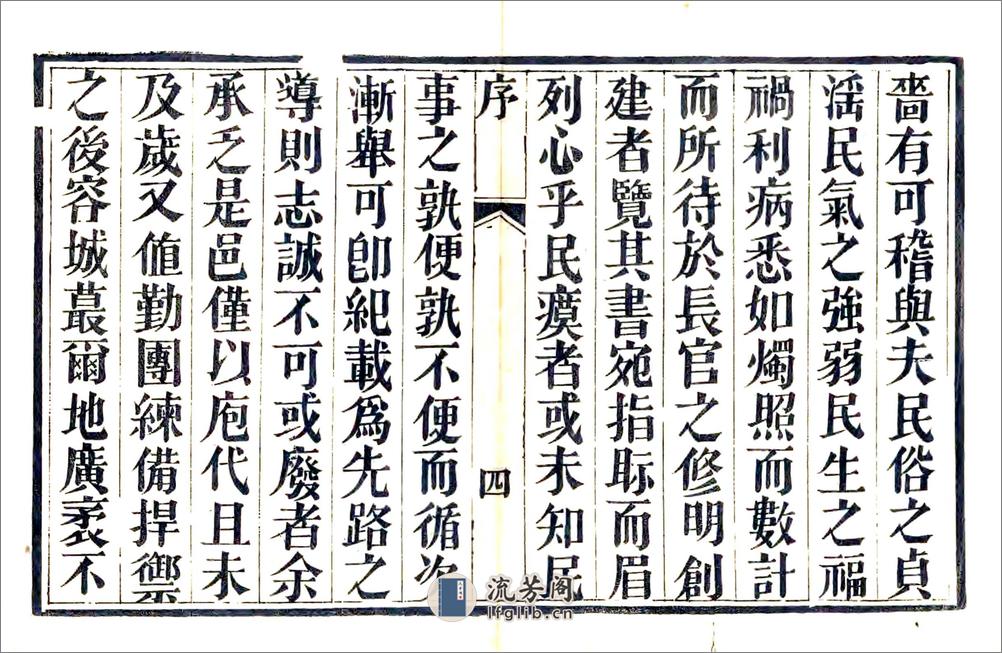 嗇有可稽與夫民俗之貞
滛民氣之強弱民生之福
禍利病悉如燭照而數計
而所待於長官之修明創
建者覽其書宛指眎而眉
列心乎民瘼者或未知民
序 四
事之孰便孰不便而循次
漸舉可卽紀載爲先路之
導則志誠不可或廢者余
承乏是邑僅以庖代且未
及歲又値勤團練備捍禦
之後容城蕞爾地廣袤不
流芳阁
lfglib.cn